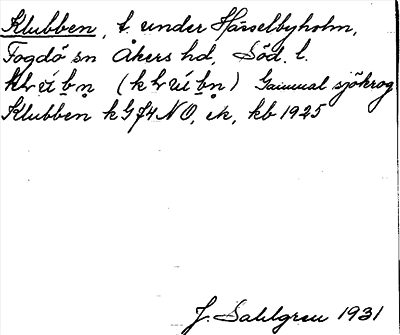 Klubben, t. under Härselbyholm,
Fogdö sn Åkers hd, Söd. l.
(
) Gammal sjökrog
Klubben kG74NO, ek, kb 1925
J. Sahlgren 1931